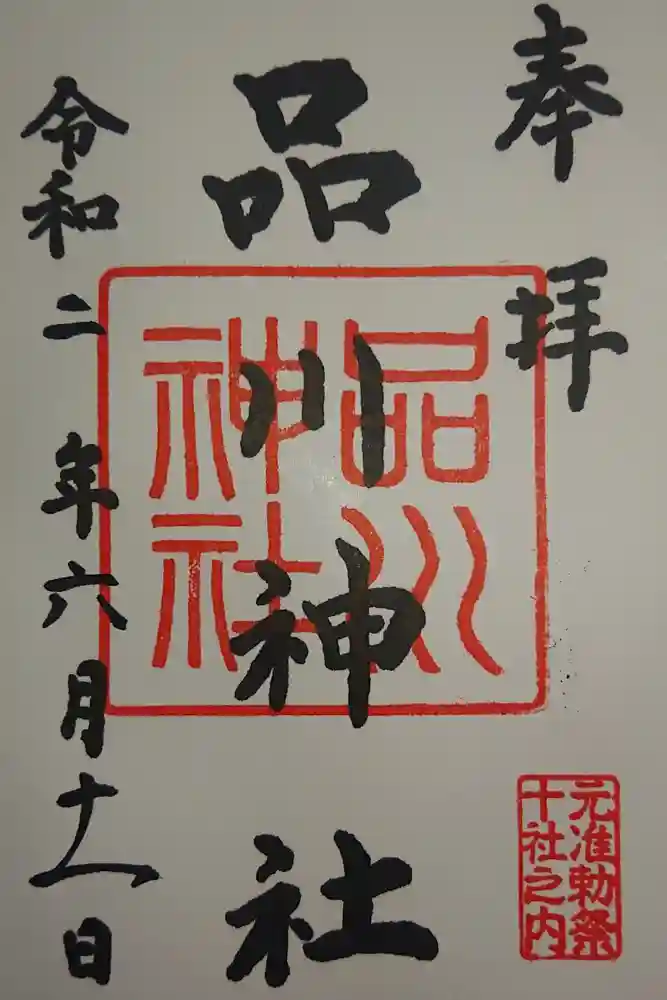 奉拝
品川神社
令和二年六月十一日
品川
神社
元准勅祭
十社之内